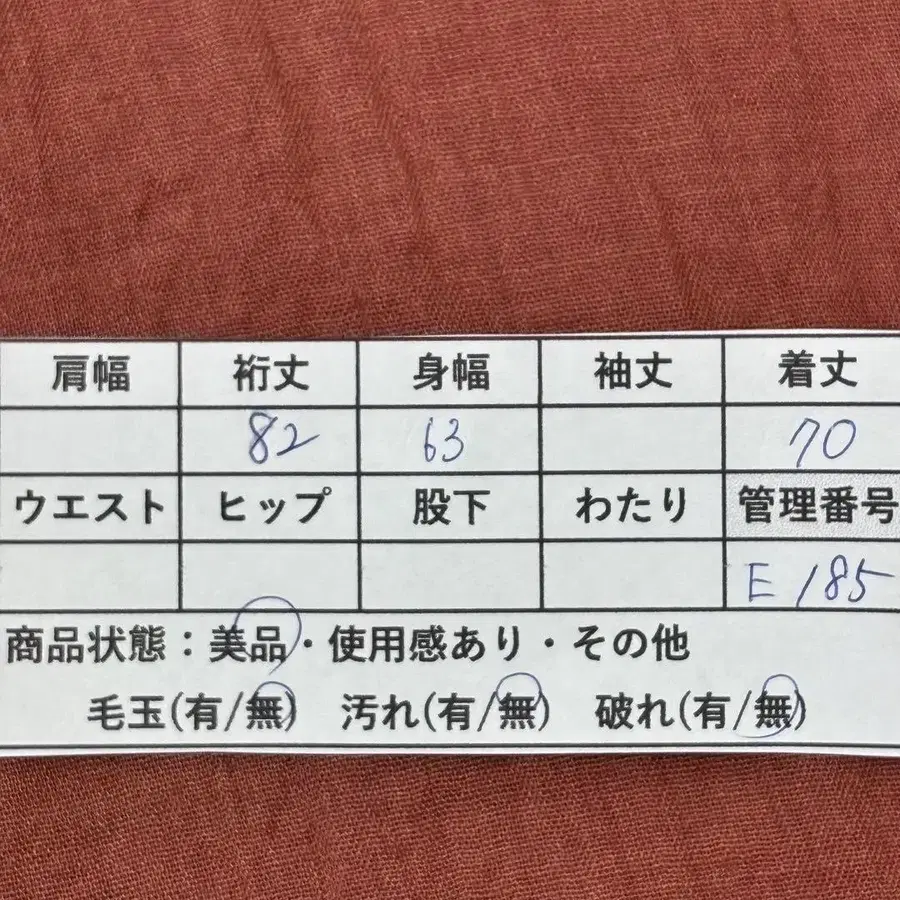 肩幅 裄丈 身幅 袖丈 着丈
82 63 70
ウエスト ヒップ 股下 わたり 管理番号
E 185
商品状態：美品・使用感あり・その他
毛玉(有/無) 汚れ(有/無) 破れ(有/無)